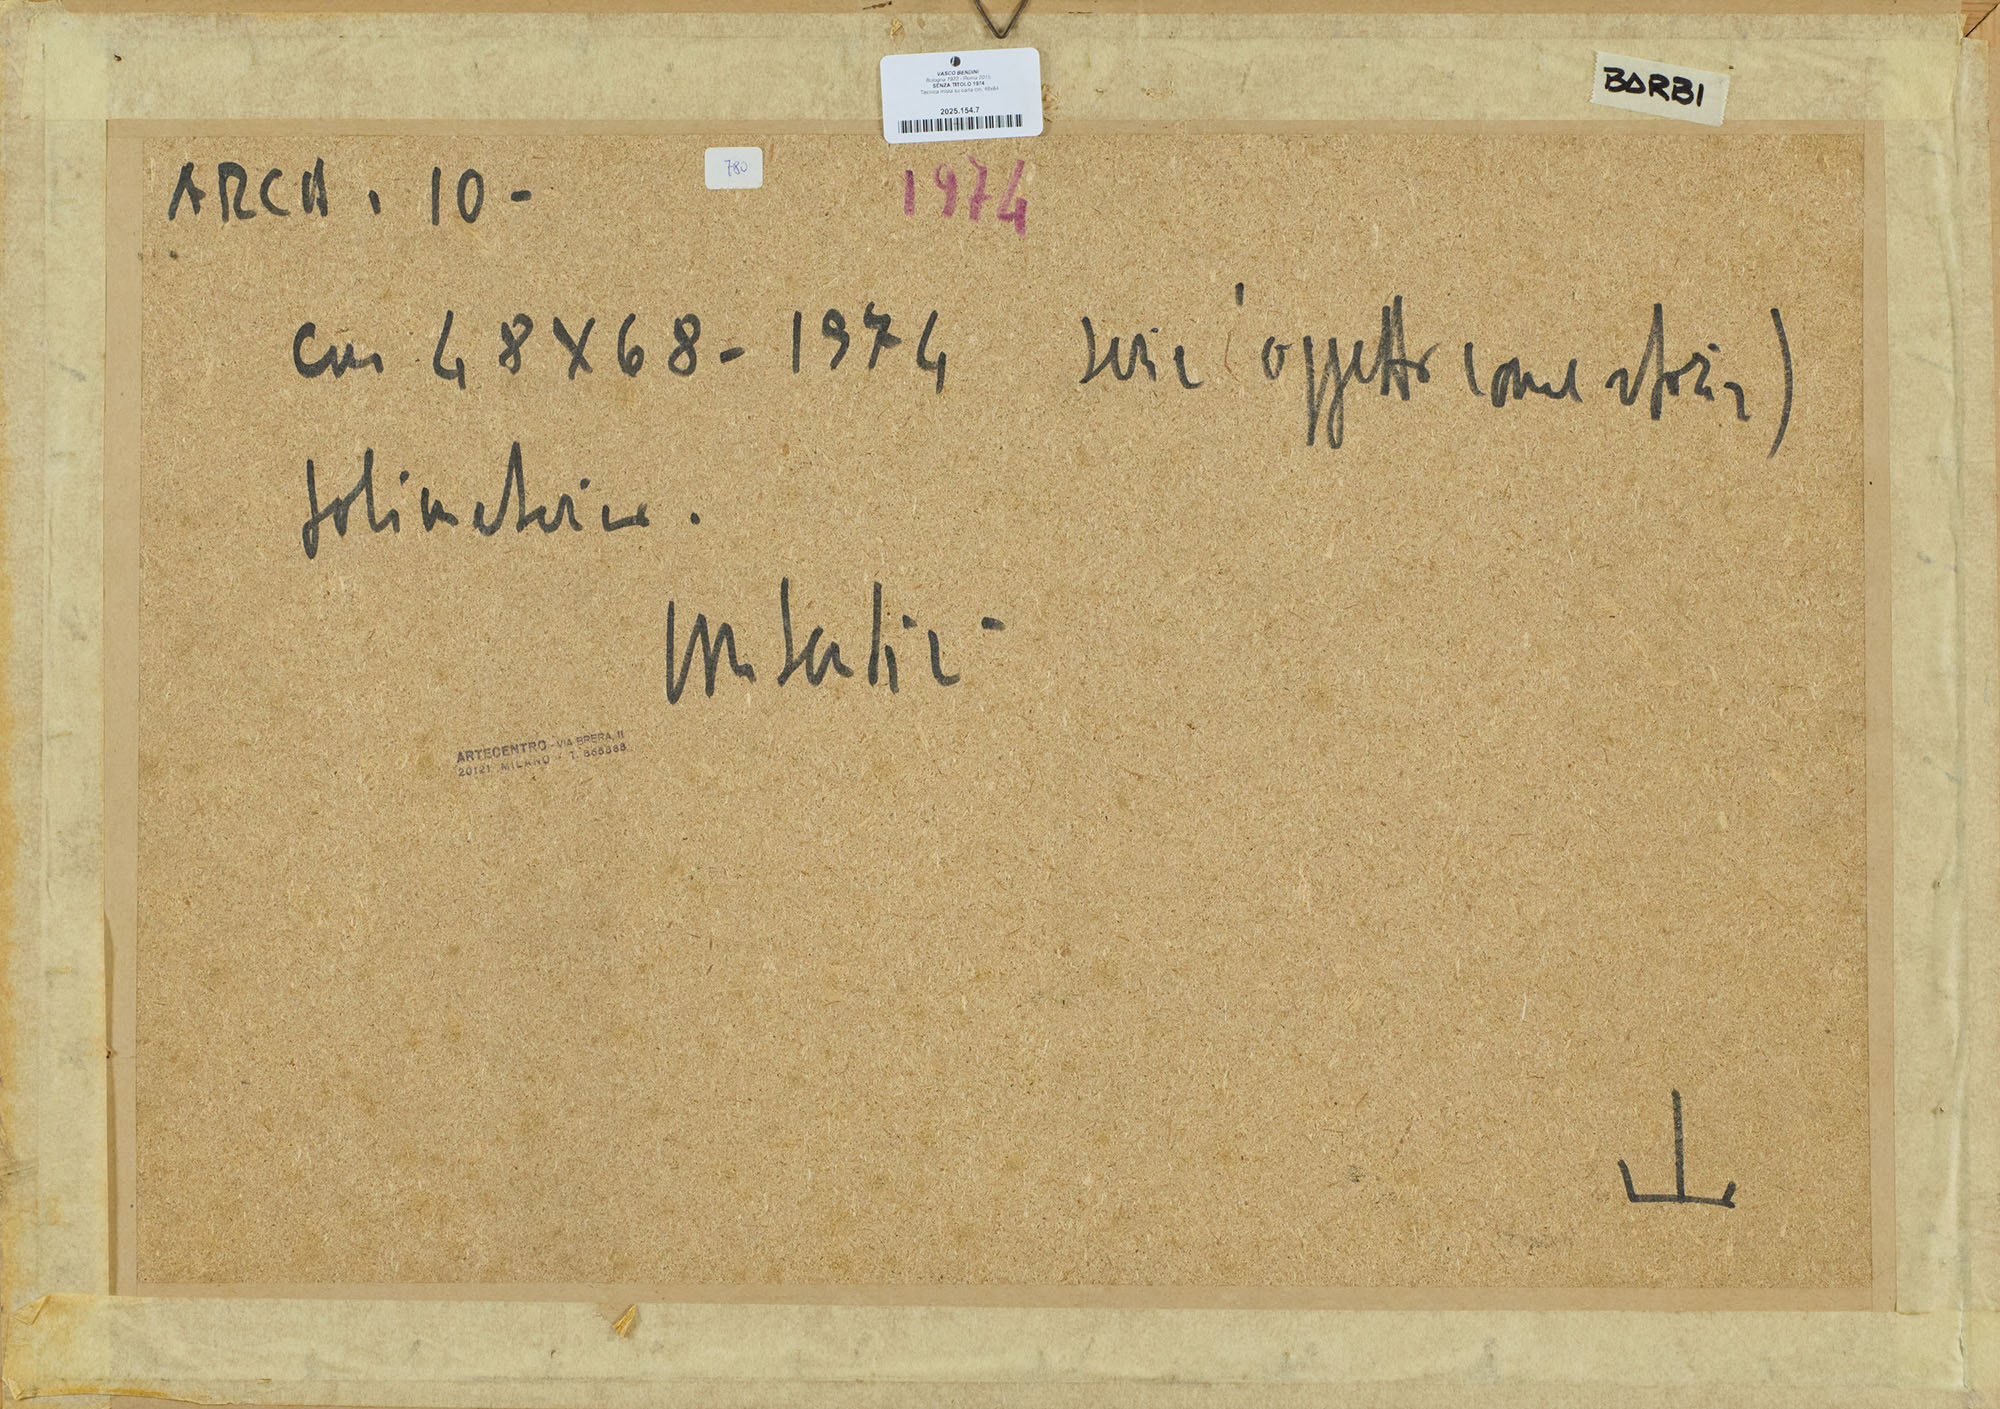 VASCO BENDINI
Bologna 1922 - Roma 2015
SENZA TITOLO 1974
Tecnica mista su carta cm. 48x68
2025.154.7
BARBI
780
ARCH. 10-
1974
cm 48X68-1974 serie (oggetto come storia)
polimaterico.
ARTECENTRO - VIA BRERA, 11
20121 MILANO - T. 865888